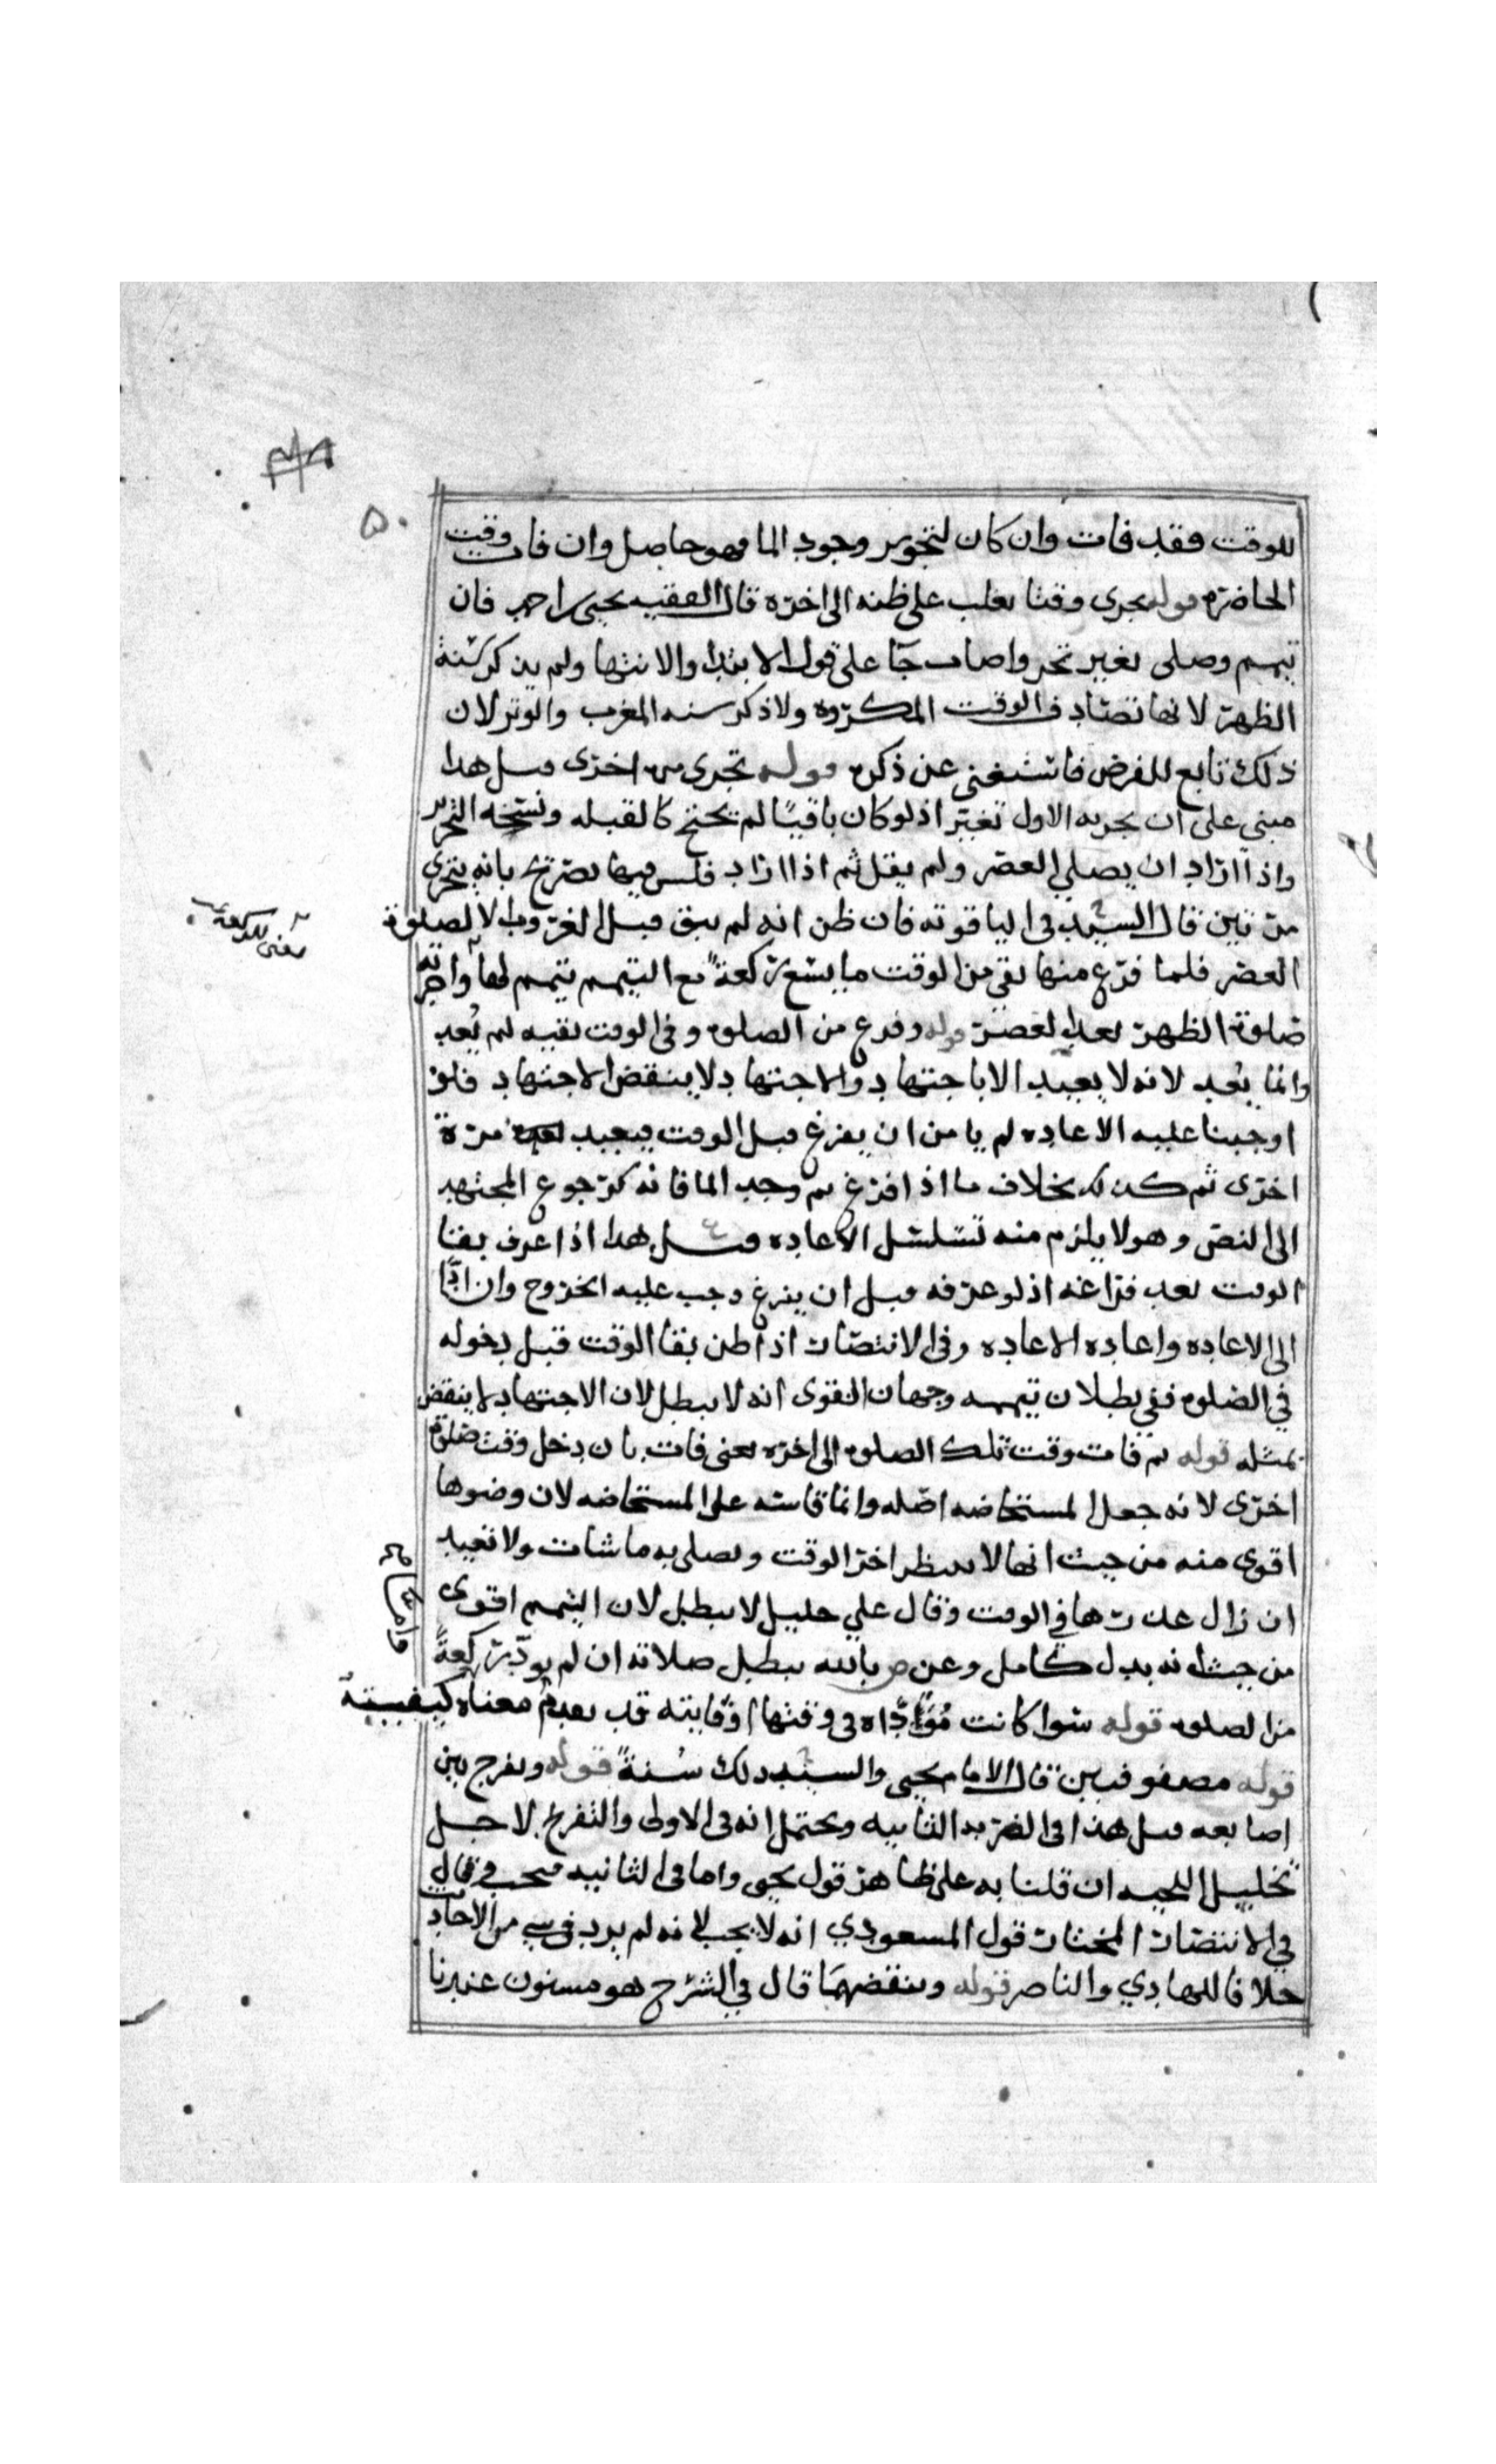 ٥٠
للوقت فقد فات وان كان لتجويز وجود الما فهو حاصل وان فات وقت
الحاضره قوله تحرى وقتا يغلب على ظنه الى اخره قال الفقيه يحيى احمد فان
تيمم وصلى بغير تحر واصاب جا على قول الابتدا والانتها ولم يذكر سنة
الظهر لانها تصاد ف الوقت المكروه ولا ذكر سنه المغرب والوتر لان
ذلك تابع للفرض فاستغنى عن ذكره قوله تحرى من اخرى قيل هذا
مبني على ان تحريه الاول تغير اذ لو كان باقيًا لم يحتج كالقبله ونسخه التحرير
واذا اراد ان يصلي العصر ولم يقل ثم اذا اراد فليس فيها تصريح بانه يتحرى
مرتين قال السيد في الياقوته فان ظن انه لم يبق قبل الغروب الا لصلوة
العصر فلما فرغ منها بقي من الوقت ما يسع ركعة مع التيمم تيمم لها واجزته
صلوة الظهر بعد العصر قوله وفرغ من الصلوه وفي الوقت بقيه لم يُعد
وانما يُعد لانه لا يعيد الا باجتهاد والاجتهاد لا ينقض الاجتهاد فلو
اوجبنا عليه الاعاده لم يامن ان يفرغ قبل الوقت فيعيد مرة
اخرى ثم كذلك بخلاف ما اذا فرغ ثم وجد الما فانه كرجوع المجتهد
الى النص وهو لا يلزم منه تسلسل الاعاده قيل هذا اذا عرف بقا
الوقت بعد فراغه اذ لو عرفه قبل ان يفرغ وجب عليه الخروج وان ادّا
الى الاعاده واعاده الاعاده وفي الانتصار اذا ظن بقا الوقت قبل دخوله
في الصلوه ففي بطلان تيممه وجهان القوى انه لا يبطل لان الاجتهاد لا ينقض
بمثله قوله ثم فات وقت تلك الصلوه الى اخره يعني فات بان دخل وقت صلوة
اخرى لانه جعل المستحاضه اصله وانما قاسه على المستحاضه لان وضوها
اقوى منه من حيث انها لا تنتظر اخر الوقت وتصلي به ما شات ولا تعيد
ان زال عذرها في الوقت وقال علي خليل لا يبطل لان التيمم اقوى
من حيث انه بدل كامل وعن ص بالله يبطل صلاته ان لم يودّ ركعةً
من الصلوه قوله سوا كانت مُؤَدّاه في وقتها او فايته قد تقدم معناه كيفيته
قوله مصفوفين قال الامام يحيى والسيد ذلك سُنةً قوله ويفرج بين
اصابعه قيل هذا في الضربه الثانيه ويحتمل انه في الاولى والتفريج لاجل
تخليل اللحيه ان قلنا به على ظاهر قول يحيى واما في الثانيه فيجب وقال
في الانتصار المختار قول المسعودي انه لا يجب لانه لم يرد في شي من الاحاديث
خلافا للهادي والناصر قوله وينفضهما قال في الشرح هو مسنون عندنا